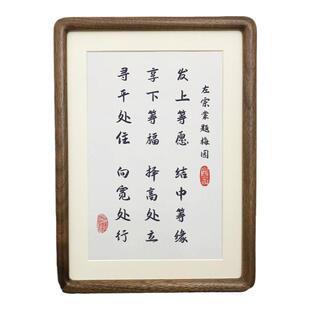 左宗棠题梅园
发上等愿 结中等缘
享下等福 择高处立
寻平处住 向宽处行